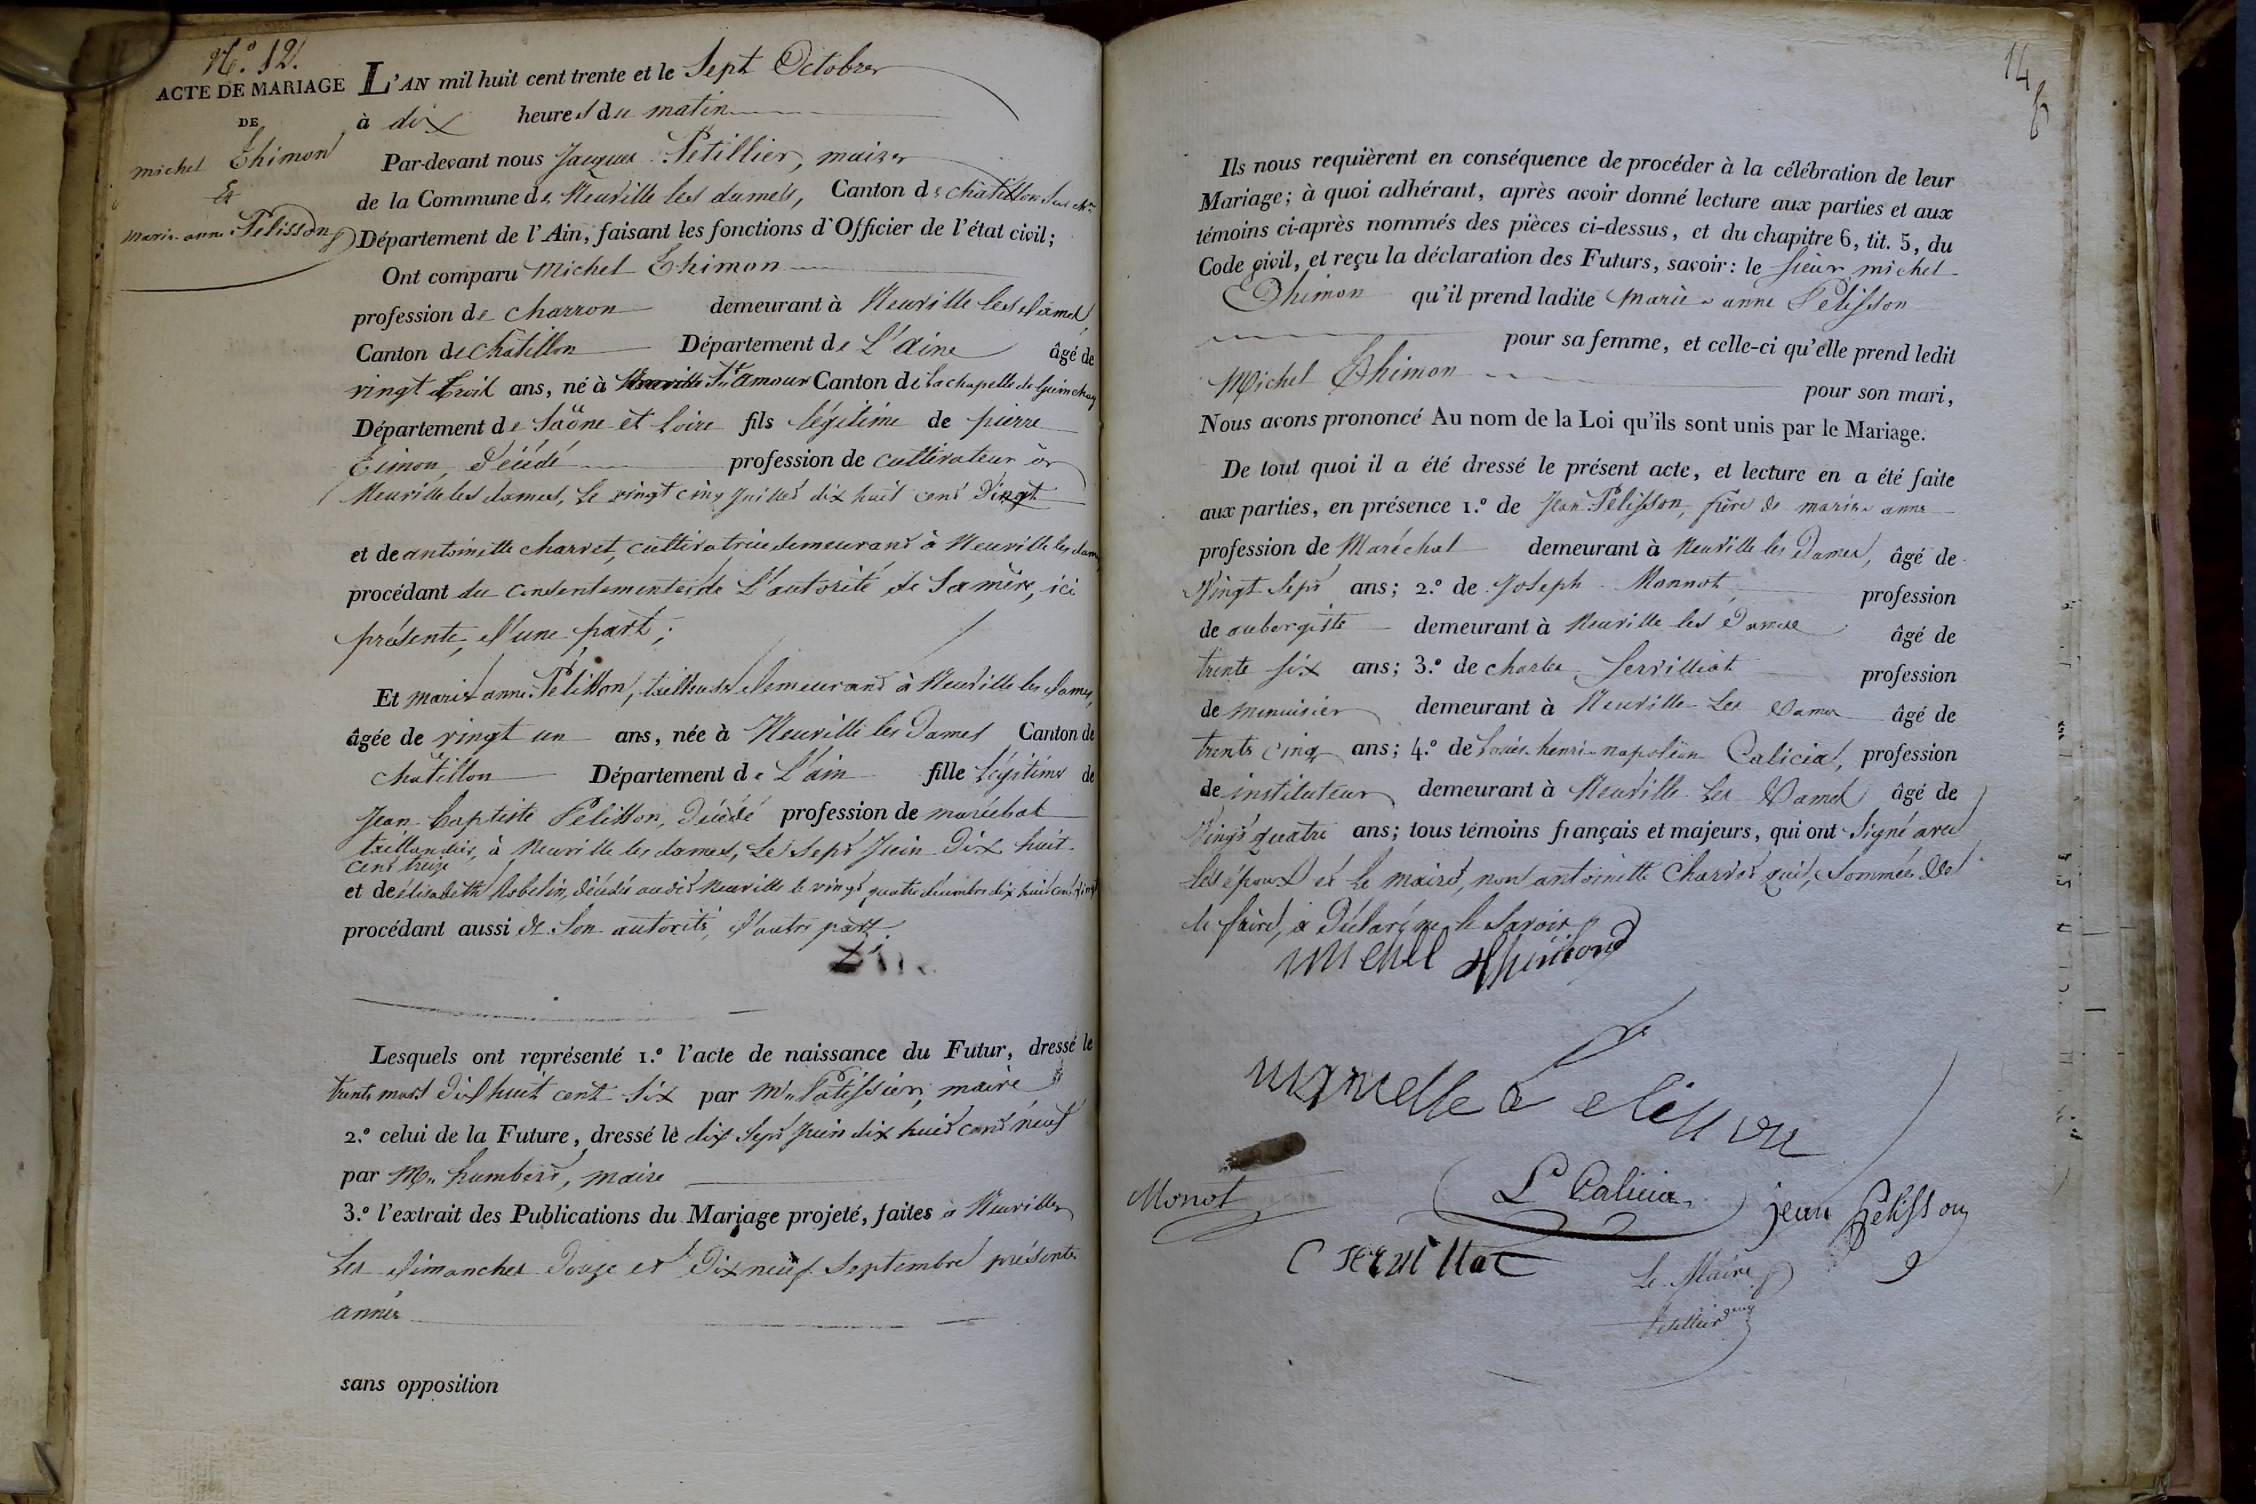 N.° 12.
ACTE DE MARIAGE
DE
michel Thimon
Et
marie anne Pelisson
L'AN mil huit cent trente et le Sept Octobre
à dix heures du matin
Par-devant nous Jacques Petillier, maire
de la Commune de Neuville les dames, Canton de chatillon sur ch.ne
Département de l'Ain, faisant les fonctions d'Officier de l'état civil;
Ont comparu Michel Thimon
profession de charron demeurant à Neuville les dames
Canton de châtillon Département de L'aine âgé de
vingt trois ans, né à St amour Canton de la chapelle de Guinchay
Département de Saône et Loire fils légitime de pierre
Timon, décédé profession de cultivateur à
Neuville les dames, le vingt cinq juillet dix huit cent vingt
et de antoinette charvet, cultivatrice demeurant à Neuville les dames
procédant du consentement et de L'autorité de Sa mère, ici
présente, d'une part;
Et marie anne Pélisson, tailleuse demeurant à Neuville les dames,
âgée de vingt un ans, née à Neuville les Dames Canton de
châtillon Département de L'ain fille légitime de
Jean Baptiste Pelisson, décédé profession de maréchal
taillandier, à Neuville les dames, le sept Juin Dix huit
cent treize
et de élisabeth Robelin, décédée audit Neuville le vingt quatre décembre dix huit cent vingt
procédant aussi de Son autorité, d'autre part.
Lesquels ont représenté 1.° l'acte de naissance du Futur, dressé le
trente mars dix huit cent six par Mr. Patissier, maire
2.° celui de la Future, dressé le dix sept juin dix huit cent neuf
par Mr. humbert, maire
3.° l'extrait des Publications du Mariage projeté, faites à Neuville
les dimanches Douze et Dix neuf Septembre présente
année
sans opposition
14
Ils nous requièrent en conséquence de procéder à la célébration de leur
Mariage; à quoi adhérant, après avoir donné lecture aux parties et aux
témoins ci-après nommés des pièces ci-dessus, et du chapitre 6, tit. 5, du
Code civil, et reçu la déclaration des Futurs, savoir: le sieur michel
Thimon qu'il prend ladite marie anne Pelisson
pour sa femme, et celle-ci qu'elle prend ledit
Michel Thimon pour son mari,
Nous avons prononcé Au nom de la Loi qu'ils sont unis par le Mariage.
De tout quoi il a été dressé le présent acte, et lecture en a été faite
aux parties, en présence 1.° de Jean Pelisson, frère de marie anne
profession de Maréchal demeurant à Neuville les Dames, âgé de
Vingt sept ans; 2.° de Joseph Monnot, profession
de aubergiste demeurant à Neuville les Dames âgé de
trente six ans; 3.° de charles Servilliat profession
de menuisier demeurant à Neuville Les Dames âgé de
trente cinq ans; 4.° de Louis henri napoléon Calicia, profession
de instituteur demeurant à Neuville Les Dames âgé de
Vingt quatre ans; tous témoins français et majeurs, qui ont Signé avec
les époux et le maire, non antoinette Charvet qui, Sommée de
le faire, a déclaré ne le Savoir
michel thimond
Monot
L Calicia
jean pelisson
C servillat
Le Maire
Petillier